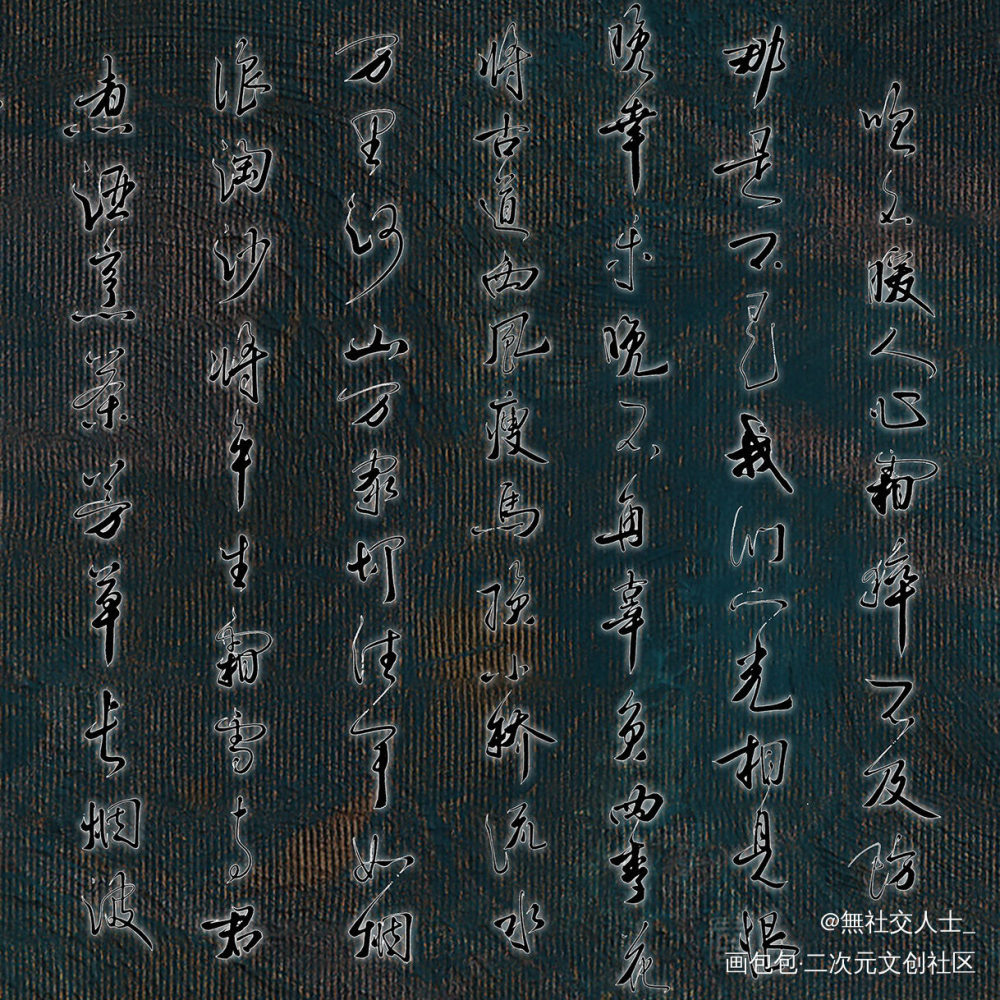 暖人心霜猝不及防
那是不是我们光相见恨
晚幸未晚不再辜负两青花
将古道西风瘦马换小桥流水
万里河山万家灯往年如烟
浪淘沙将年生霜雪寄君
煮酒烹茶芳草长烟波
@無社交人士_
画包包·二次元文创社区